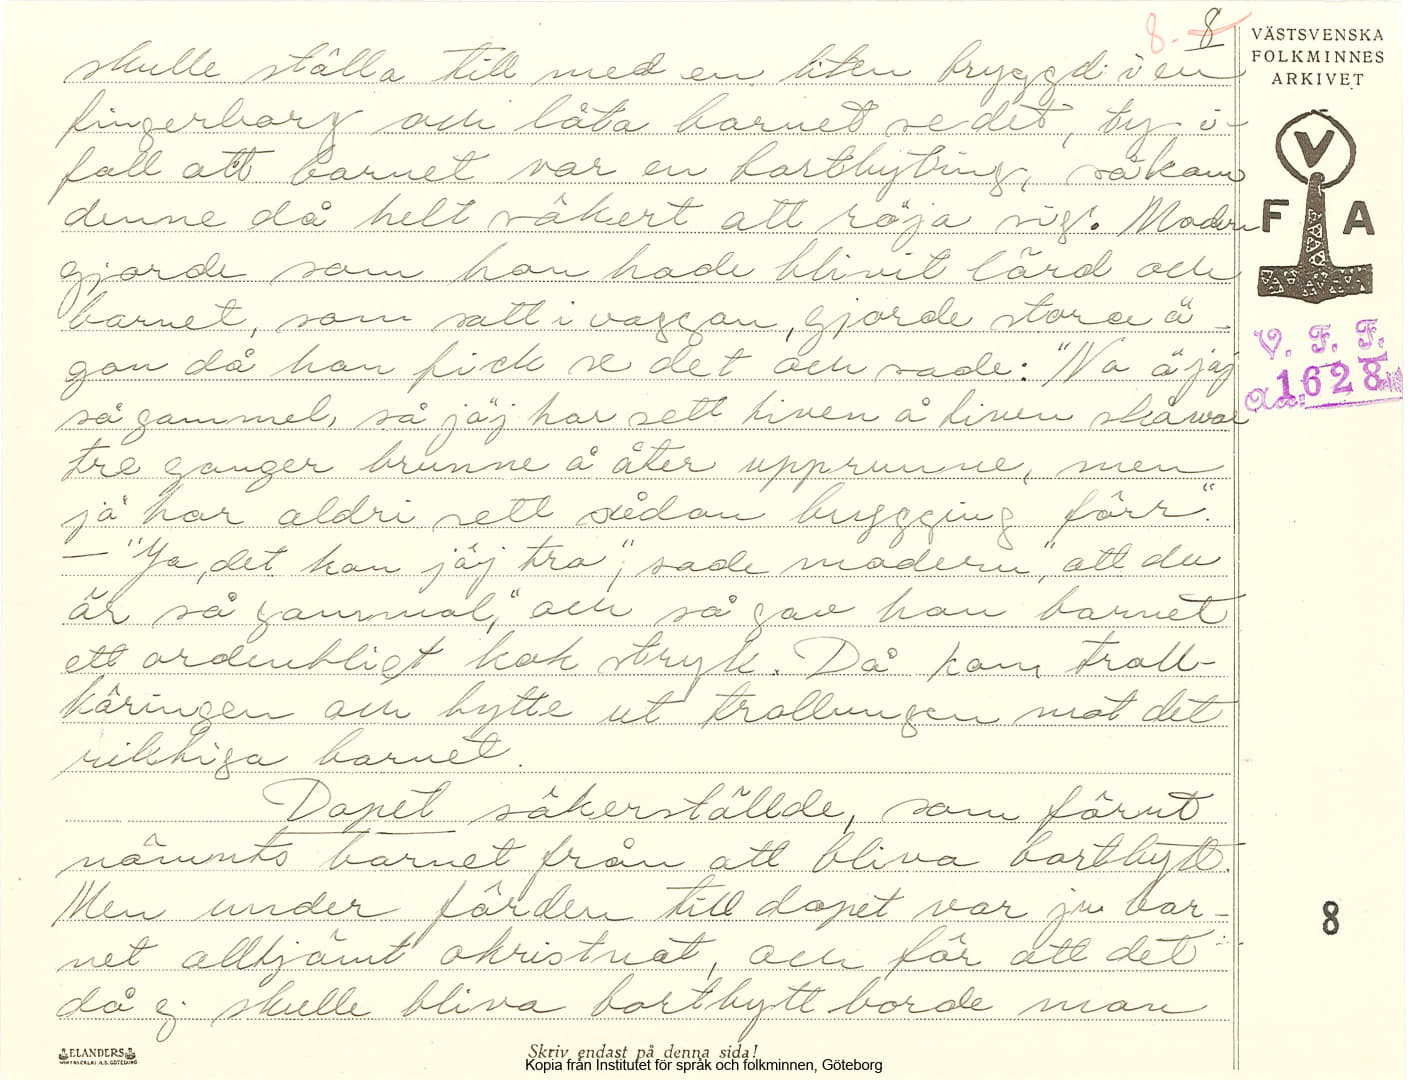 8. 8
VÄSTSVENSKA
FOLKMINNES
ARKIVET
V
F A
V. F. F.
1628
skulle ställa till med en liten bryggd i en
fingerborg och låta barnet se det, ty i-
fall att barnet var en bortbyting, så kom
denne då helt säkert att röja sig. Modern
gjorde som hon hade blivit lärd och
barnet, som satt i vaggan, gjorde stora ö-
gon då han fick se det och sade: "Na ä jäj
så gammel, så jäj har sett tiven å tiven skåwar
tre ganger brunne å åter upprunne, men
jä har aldri sett sådan bryggging förr."
— "Ja, det kan jäj tro", sade modern, "att du
är så gammal," och så gav hon barnet
ett ordentligt kok stryk. Då kom troll-
käringen och bytte ut trollungen mot det
riktiga barnet.
Dopet säkerställde, som förut
nämnts barnet från att bliva bortbytt.
Men under färden till dopet var ju bar-
net alltjämt okristnat, och för att det
då ej skulle bliva bortbytt borde man
8
ELANDERS
Skriv endast på denna sida!
Kopia från Institutet för språk och folkminnen, Göteborg